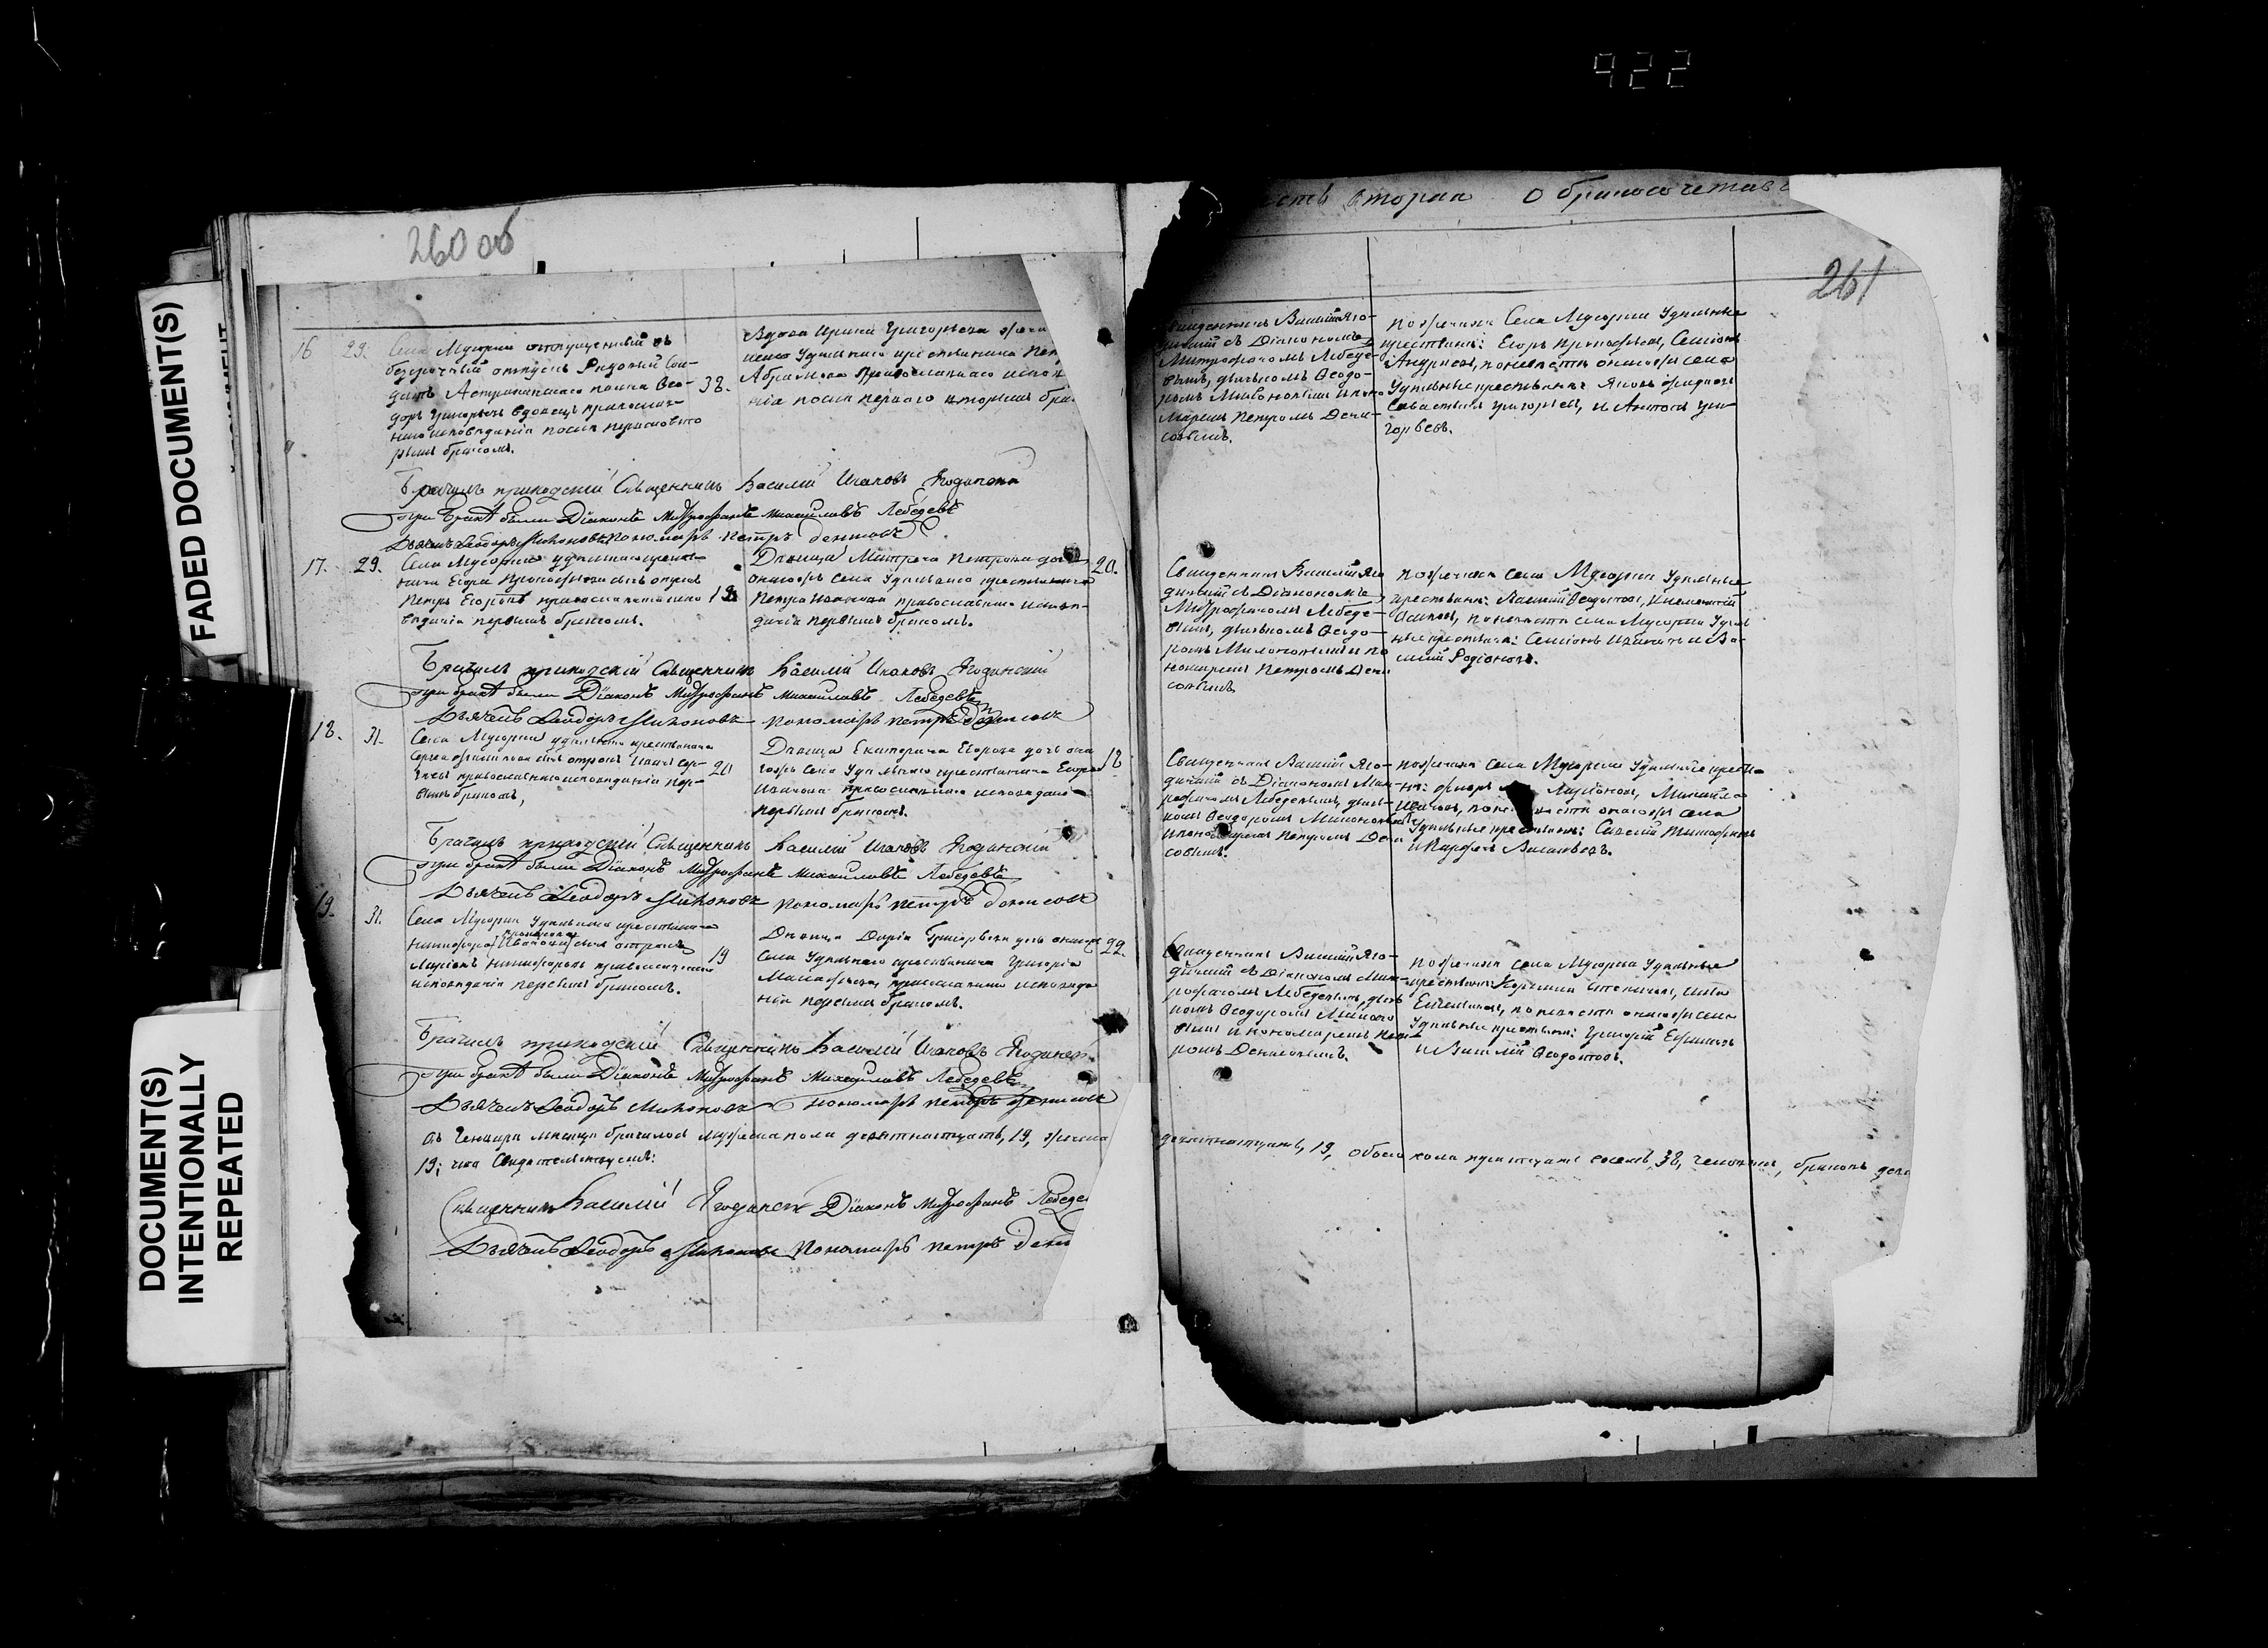 922
FADED DOCUMENT(S)
DOCUMENT(S)
INTENTIONALLY
REPEATED
260 об
16 29. Села Мусорки отпущенный въ
безсрочный отпускъ Рядовой Сол-
датъ Астраханскаго полка Ѳео-
доръ Григорьевъ вдовецъ православ-
наго исповѣданія послѣ перваго вто
рымъ бракомъ.
38.
Вдова Ирина Григорьева жена
Удѣльнаго крестьянина
Абрамова Православнаго испов
нія послѣ перваго вторымъ бра
Бракъ приходскій Священникъ Василій Исаковъ Ягодинскій
при бракѣ были Діаконъ Митрофанъ Михайловъ Лебедевъ
Дьячекъ Ѳеодоръ Милоновъ Пономарь Петръ Денисовъ
17. 29. Села Мусорки удѣльнаго крестья-
нина Егора Прокофьева сынъ
Петръ Егоровъ православнаго испо
вѣданія первымъ бракомъ.
18
Дѣвица Матрона Петрова дочь
онагожъ села Удѣльнаго крестьянина
Петра Иванова православнаго исповѣ-
данія первымъ бракомъ.
20.
приходскій Священникъ Василій Исаковъ Ягодинскій
при бракѣ были Діаконъ Митрофанъ Михайловъ Лебедевъ
Дьячекъ Ѳеодоръ Милоновъ пономарь петръ Денисовъ
18. 31. Села Мусорки удѣльнаго крестьянина
сынъ отрокъ Сер-
православнаго исповѣданія пер-
вымъ бракомъ,
20
Дѣвица Екатерина Егорова дочь она
гожъ села Удѣльнаго крестьянина Егора
Иванова православнаго исповѣданія
первымъ бракомъ.
18
приходскій Священникъ Василій Исаковъ Ягодинскій
при бракѣ были Діаконъ Митрофанъ Михайловъ Лебедевъ
Дьячекъ Ѳеодоръ Милоновъ пономарь петръ денисовъ
19. 31. Села Мусорки Удѣльнаго крестьянина
Никифора Иванова сынъ отрокъ
Ларіонъ Никифоровъ православнаго
исповѣданія первымъ бракомъ.
19
Дѣвица Дарія Григорьева дочь онагожъ
села Удѣльнаго крестьянина Григорія
православнаго исповѣда
нія первымъ бракомъ.
22.
приходскій Священникъ Василій Исаковъ
при бракѣ были Діаконъ Митрофанъ Михайловъ Лебедевъ
Дьячекъ Ѳеодоръ Милоновъ пономарь петръ денисовъ
въ Генварѣ мѣсяцѣ брачилось мужеска пола девятнатцать, 19, женска
19; что свидѣтельствуемъ:
Священникъ Василій Ягодинск Діаконъ Митрофанъ Лебеде
Дьячекъ Ѳеодоръ Милоновъ Пономарь петръ Дени
сть вторая О бракосочетав
261
Священникъ Василій Яго-
динскій съ Діакономъ
Митрофаномъ Лебеде-
вымъ, дьячкомъ Ѳеодо-
ромъ Милоновымъ и поно
маремъ Петромъ Дени-
совымъ.
по женихѣ Села Мусорки Удѣльные
крестьяне: Егоръ Прокофьевъ, Семіонъ
Андреевъ, по невѣстѣ онагожъ села
Удѣльные крестьяне Яковъ
Савастьянъ Григорьевъ, и Антонъ Гри
горьевъ.
Священникъ Василій Яго
динскій съ Діакономъ
Митрофаномъ Лебеде-
вымъ, дьячкомъ Ѳеодо-
ромъ Милоновымъ и по
номаремъ Петромъ Дени
совымъ
по женихѣ села Мусорки Удѣльные
крестьяне:
по невѣстѣ села Мусорки Удѣль
ные крестьяне: Семіонъ и Ва-
силій Родіоновъ.
Священникъ Василій Яго-
динскій съ Діакономъ Мит-
рофаномъ Лебедевымъ, дьяч-
комъ Ѳеодоромъ Милоновымъ
и пономаремъ Петромъ Дени
совымъ.
по женихѣ села Мусорки Удѣльные кресть
Ларіоновъ, Михайла
онагожъ села
Удѣльные крестьяне: Савелій Тимофѣевъ
Васильевъ.
Священникъ Василій Яго-
динскій съ Діакономъ Мит-
рофаномъ Лебедевымъ, дьяч
комъ Ѳеодоромъ Милоно
вымъ и пономаремъ Пет-
ромъ Денисовымъ.
по женихѣ села Мусорки Удѣльные
крестьяне:
по невѣстѣ онагожъ села
Удѣльные крестьяне: Григорій Ефимовъ
и Василій Ѳедотовъ.
девятнатцать, 19, обоего пола тритцать восемь, 38, человѣкъ, браковъ девя